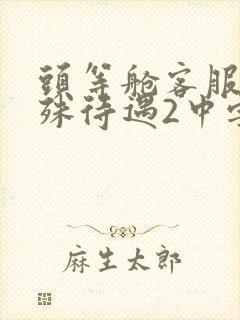 頭等舱客服
殊待遇2中字
麻生太郎